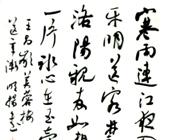 寒雨連江夜
平明送客楚
洛陽親友如相
一片冰心在玉壺
王昌齡芙蓉樓
送辛漸